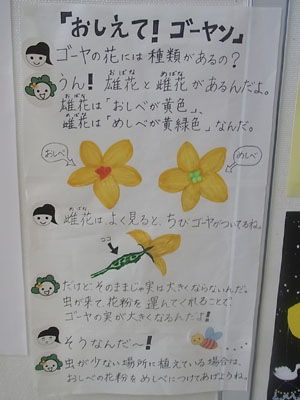 『おしえて！ ゴーヤン』
ゴーヤの花には種類があるの？
うん！ 雄花と雌花があるんだよ。
おばな
めばな
雄花は「おしべが黄色」、
おばな
雌花は「めしべが黄緑色」なんだ。
めばな
おしべ
めしべ
雌花は、よく見ると、ちびゴーヤがついてるね。
めばな
ココ
だけど、そのままじゃ実は大きくならないんだ。
虫が来て、花粉を運んでくれることで、
ゴーヤの実が大きくなるんだよ！
そうなんだ〜！
虫が少ない場所に植えている場合は、
おしべの花粉をめしべにつけてあげようね。